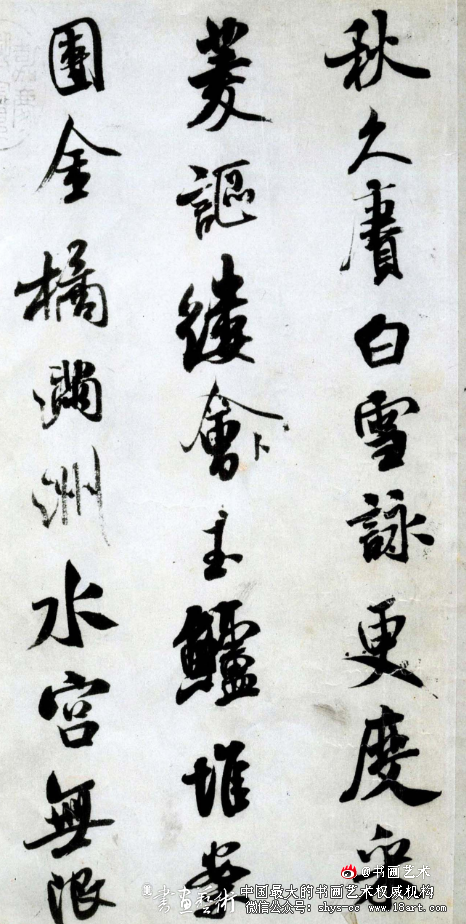 秋久賡白雪詠更度采
菱謳縷會玉鱸堆案
團金橘滿洲水宮無限
書畫藝術
@书画艺术
中国最大的书画艺术权威机构
微信公众号: shys-cc www.18art.com